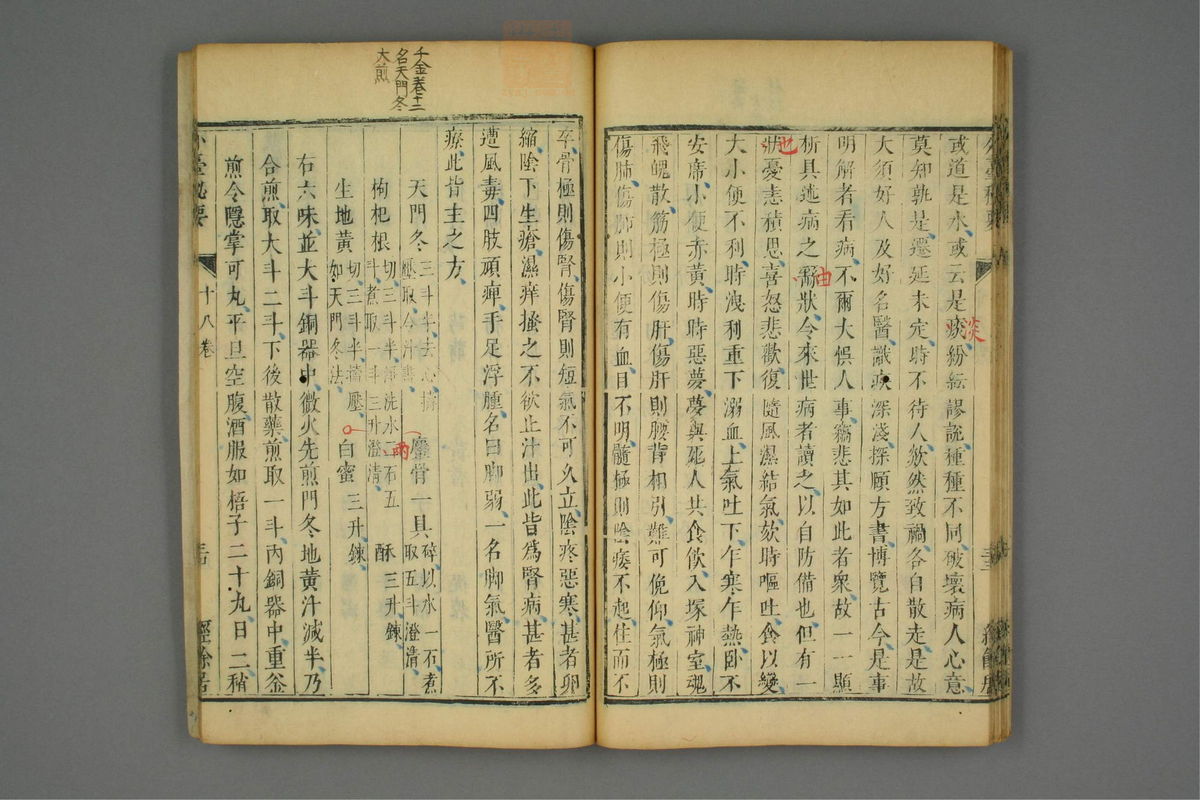 或道是水或云是痰紛紜謬説種種不同破壞病人心意
莫知孰是遷延未定時不待人欻然致禍各自散走是故
大須好人及好名醫識疾深淺探賾方書博覽古今是事
明解者看病不爾大悞人事竊悲其如此者衆故一一顯
析具述病之由狀令來世病者讀之以自防備也但有一
狀憂恚積思喜怒悲歡復隨風濕結氣欬時嘔吐食以變
大小便不利時洩利重下溺血上氣吐下乍寒乍熱卧不
安席小便赤黃時時惡夢夢與死人共食飲入塚神室魂
飛魄散筋極則傷肝傷肝則腰背相引難可俛仰氣極則
傷肺傷肺則小便有血目不明髓極則陰痿不起住而不
卒骨極則傷腎傷腎則短氣不可久立陰疼惡寒甚者卵
縮陰下生瘡濕痒搔之不欲止汁出此皆爲腎病甚者多
遭風毒四肢頑痹手足浮腫名曰脚弱一名脚氣醫所不
療此皆主之方
天門冬三斗半去心擣壓取今汁盡 鏖骨一具碎以水一石煮取五斗澄清
枸杞根切三斗半淨洗水二石五斗煮取一斗三升澄清 酥三升鍊
生地黃切三斗半擣壓如天門冬法 白蜜三升鍊
右六味並大斗銅器中微火先煎門冬地黃汁減半乃
合煎取大斗二斗下後散藥煎取一斗內銅器中重釜
煎令隱掌可丸平旦空腹酒服如梧子二十丸日二稍
外臺秘要 十八卷 經餘居
千金卷十二
名天門冬
大煎
也
由
淡
兩